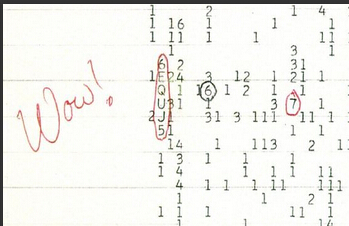 1 2 1 4
1 16 1 1 1
1 1 1 1 11
1 3 1
6 2 31
1 E 24 3 12 1 21 1
Wow!
Q 1 16 1 2 1 1
U 31 1 3 7 1
2 J 1 31 3 111 1
5 1 1 1
14 1 113 2 1
1 3 1 1 1
1 4 1 11 11
4 1 1 1 11 111
1 2 1
1 1 1 11 1
1 1 14